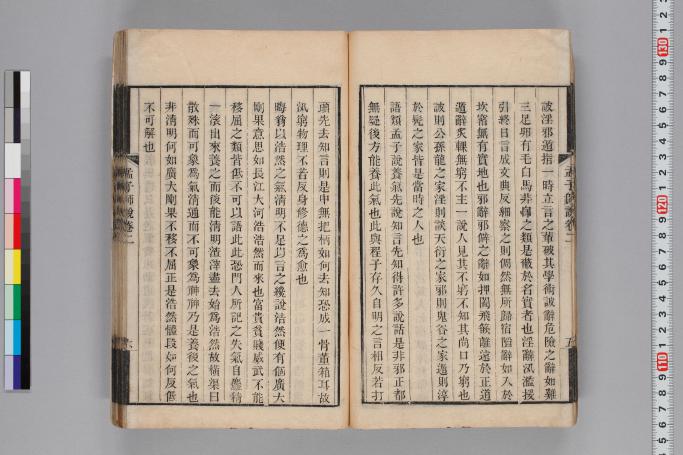 詖淫邪遁指一時立言之輩破其學術詖辭危險之辭如雞
三足卵有毛白馬非馬之類是蔽於名實者也淫辭汎濫援
引終日言成文典反細察之則倜然無所歸宿陷辭如入於
坎窞無有實地也邪辭邪僻之辭如捭闔飛箝離遠於正道
遁辭炙輠無窮不主一說人見其不窮不知其尚口乃窮也
詖則公孫龍之家淫則談天衍之家邪則鬼谷之家遁則淳
於髠之家皆是當時之人也
語類孟子說養氣先說知言先知得許多說話是非邪正都
無疑後方能養此氣也此與程子存久自明之言相反若打
頭先去知言則是中無把柄如何去知恐成一骨董箱耳故
汎窮物理不若反身修德之為愈也
晦翁以浩然之氣清明不足以言之纔說浩然便有個廣大
剛果意思如長江大河浩浩然而來也富貴貧賤威武不能
移屈之類皆低不可以語此此恐門人所記之失氣自塵精
一滚出來養之而後能清明渣滓盡去始為浩然故橫渠曰
散殊而可象為氣清通而不可象為神神乃是養後之氣也
非清明何如廣大剛果不移不屈正是浩然體段如何反低
不可解也
孟子師說卷二
五
孟子師說卷二
六